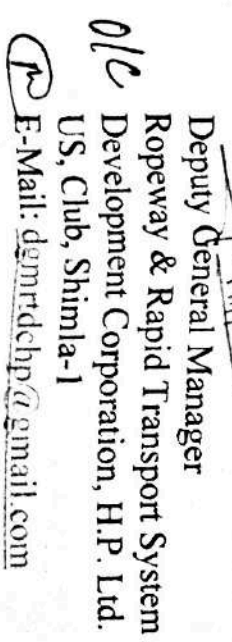 Deputy General Manager
Ropeway & Rapid Transport System
Development Corporation, H.P. Ltd.
US, Club, Shimla-1
E-Mail: dgmrtdchp@gmail.com
O/C